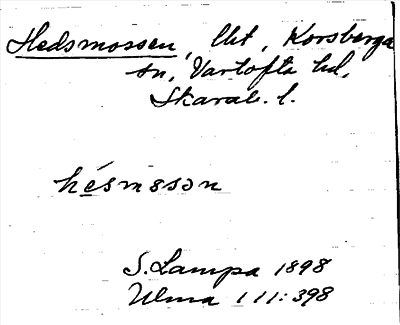 Hedsmossen, lht, Korsberga
sn, Vartofta hd,
Skarab. l.
hésmɵsən
S. Lampa 1898
Ulma 111:398